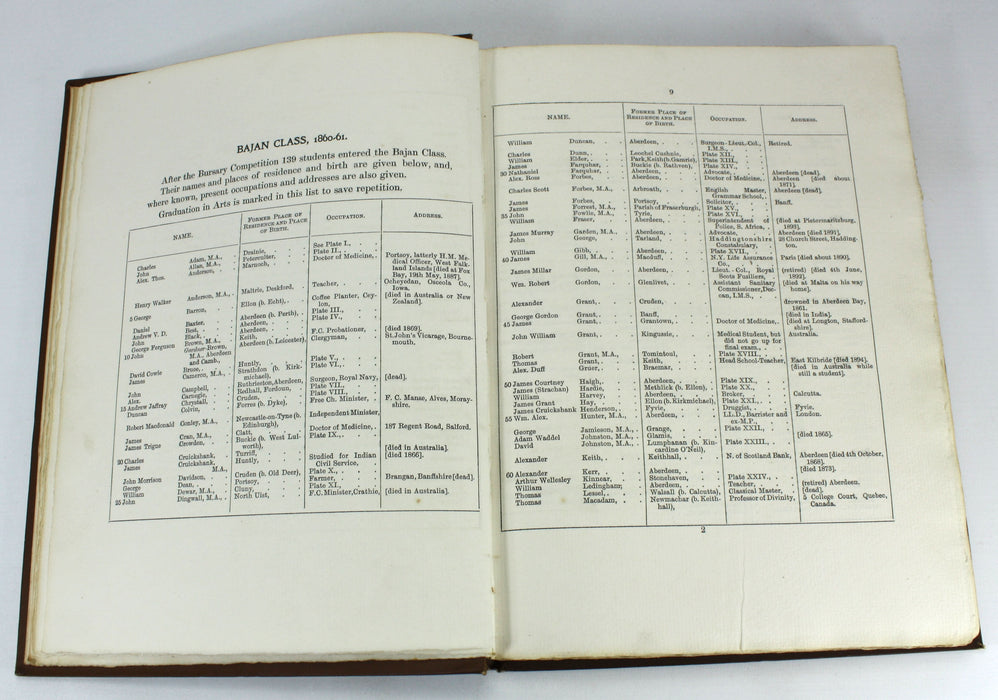 BAJAN CLASS, 1860-61.
After the Bursary Competition 139 students entered the Bajan Class.
Their names and places of residence and birth are given below, and,
where known, present occupations and addresses are also given.
Graduation in Arts is marked in this list to save repetition.
NAME. FORMER PLACE OF RESIDENCE AND PLACE OF BIRTH. OCCUPATION. ADDRESS.
Charles Adam, M.A., Drainie, See Plate I.,
John Allan, M.A., Peterculter, Plate II.,
Alex. Thos. Anderson, Marnoch, Doctor of Medicine, Portsoy, latterly H.M. Medical Officer, West Falkland Islands [died at Fox Bay, 19th May, 1887].
Henry Walker Anderson, M.A., Maitrie, Deskford, Teacher, Ocheyedan, Osceola Co., Iowa.
5 George Barron, Ellon (b. Echt), Coffee Planter, Ceylon, [died in Australia or New Zealand].
Daniel Baxter, Aberdeen (b. Perth), Plate III.,
Andrew V. D. Best, Aberdeen, Plate IV.,
John Black, Aberdeen,
George Ferguson Brown, M.A., Keith, F.C. Probationer, [died 1869].
10 John Gordon-Brown, M.A., Aberdeen and Camb., Aberdeen (b. Leicester), Clergyman, St. John's Vicarage, Bournemouth.
David Cowie Bruce, Huntly, Plate V.,
James Cameron, M.A., Strathdon (b. Kirkmichael), Plate VI.,
John Campbell, Ruthrieston, Aberdeen, Surgeon, Royal Navy, [dead].
Alex. Carnegie, Redhall, Fordoun, Plate VII.,
15 Andrew Jaffray Chrystall, Cruden, Plate VIII.,
Duncan Colvin, Forres (b. Dyke), Free Ch. Minister, F. C. Manse, Alves, Morayshire.
Robert Macdonald Conley, M.A., Newcastle-on-Tyne (b. Edinburgh), Independent Minister,
James Cran, M.A., Clatt, Doctor of Medicine, 187 Regent Road, Salford.
James Trigue Crowden, Buckie (b. West Lulworth), Plate IX.,
20 Charles Cruickshank, Turriff, [died in Australia].
James Cruickshank, M.A., Huntly, Studied for Indian Civil Service, [died 1866].
John Morrison Davidson, Cruden (b. Old Deer), Plate X.,
George Dean, Portsoy, Farmer, Brangan, Banffshire [dead].
William Dewar, M.A., Cluny, Plate XI.,
25 John Dingwall, M.A., North Uist, F.C. Minister, Crathie, [died in Australia].
9
NAME. FORMER PLACE OF RESIDENCE AND PLACE OF BIRTH. OCCUPATION. ADDRESS.
William Duncan, Aberdeen, Surgeon-Lieut.-Col., I.M.S., Retired.
Charles Dunn, Leochel Cushnie, Plate XII.,
William Elder, Park, Keith (b. Gamrie), Plate XIII.,
James Farquhar, Buckie (b. Rathven), Plate XIV.,
30 Nathaniel Farquhar, Aberdeen, Advocate, Aberdeen [dead].
Alex. Ross Forbes, Aberdeen, Doctor of Medicine, Aberdeen [died about 1871].
Charles Scott Forbes, M.A., Arbroath, English Master, Grammar School, Aberdeen [dead].
James Forbes, Portsoy, Solicitor, Banff.
James Forrest, M.A., Parish of Fraserburgh, Plate XV.,
35 John Fowlie, M.A., Tyrie, Plate XVI.,
William Fraser, Aberdeen, Superintendent of Police, S. Africa, [died at Pietermaritzburg, 1893].
James Murray Garden, M.A., Aberdeen, Advocate, Aberdeen [died 1891].
John George, Tarland, Haddingtonshire Constabulary, 28 Church Street, Haddington.
William Gibb, Aberdeen, Plate XVII.,
40 James Gill, M.A., Macduff, N.Y. Life Assurance Co., Paris [died about 1890].
James Millar Gordon, Aberdeen, Lieut.-Col., Royal Scots Fusiliers, (retired) [died 4th June, 1892].
Wm. Robert Gordon, Glenlivet, Assistant Sanitary Commissioner, Deccan, I.M.S., [died at Malta on his way home].
Alexander Grant, Cruden, drowned in Aberdeen Bay, 1861.
George Gordon Grant, Banff, [died in India].
45 James Grant, Grantown, Doctor of Medicine, [died at Longton, Staffordshire].
John William Grant, Kingussie, Medical Student, but did not go up for final exam., Australia.
Robert Grant, M.A., Tomintoul, Plate XVIII.,
Thomas Grant, Keith, Head School-Teacher, East Kilbride [died 1894].
Alex. Duff Gruer, Braemar, [died in Australia while still a student].
50 James Courtney Haigh, Aberdeen, Plate XIX.,
James (Strachan) Hardie, Methlick (b. Ellon), Plate XX.,
William Harvey, Aberdeen, Broker, Calcutta.
James Grant Hay, Ellon (b. Kirkmichael), Plate XXI.,
James Cruickshank Henderson, Fyvie, Druggist, Fyvie.
55 Wm. Alex. Hunter, M.A., Aberdeen, LL.D., Barrister and ex-M.P., London.
George Jamieson, M.A., Grange, Plate XXII.,
Adam Waddel Johnston, M.A., Glamis, [died 1865].
David Johnston, M.A., Lumphanan (b. Kincardine O'Neil), Plate XXIII.,
Alexander Keith, Keithhall, N. of Scotland Bank, Aberdeen [died 4th October, 1868].
60 Alexander Kerr, Aberdeen, [died 1873].
Arthur Wellesley Kinnear, Stonehaven, Plate XXIV.,
William Ledingham, Aberdeen, Teacher, (retired) Aberdeen.
Thomas Lessel, Walsall (b. Calcutta), Classical Master, [dead].
Thomas Macadam, Newmachar (b. Keithhall), Professor of Divinity, 5 College Court, Quebec, Canada.
2